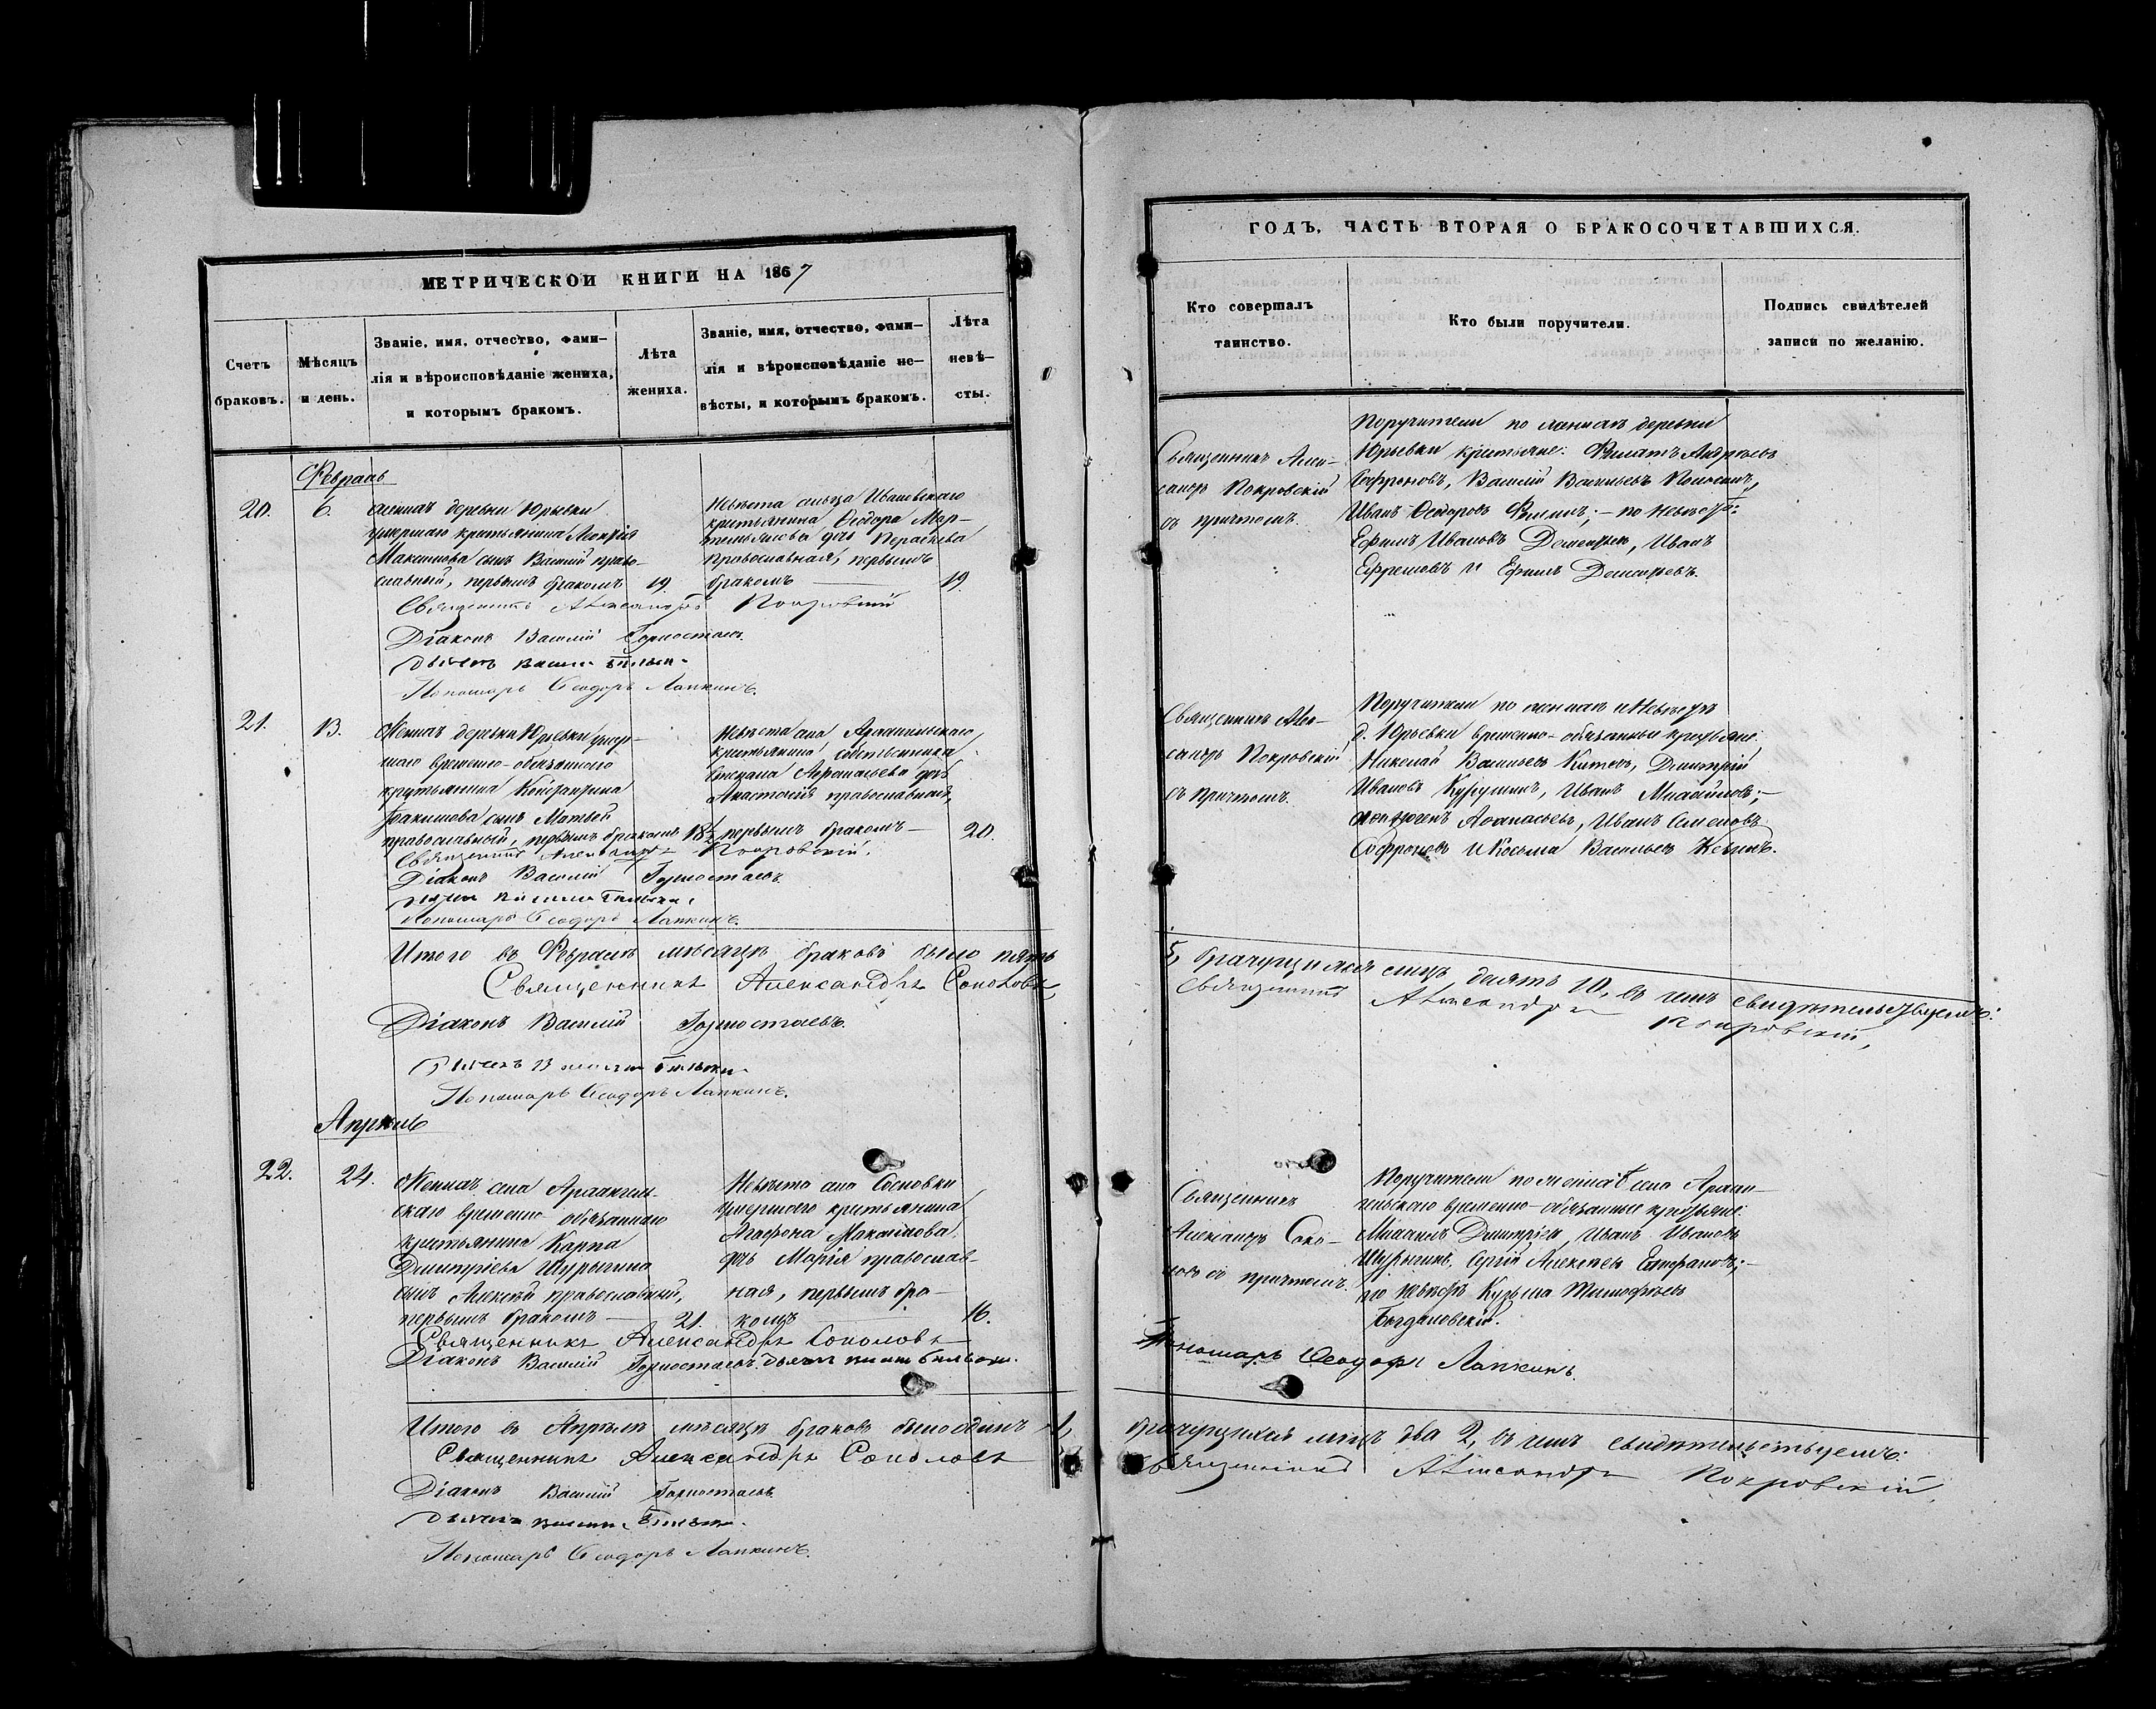 МЕТРИЧЕСКОЙ КНИГИ НА 1867
Счетъ
браковъ.
Мѣсяцъ
и день.
Званіе, имя, отчество, фами-
лія и вѣроисповѣданіе жениха,
и которымъ бракомъ.
Лѣта
жениха.
Званіе, имя, отчество, фами-
лія и вѣроисповѣданіе не-
вѣсты, и которымъ бракомъ.
Лѣта
невѣ-
сты.
Февраль
20.
6.
Женихъ деревни Юрьевки
умершаго крестьянина
Максимова сынъ Василій право-
славный, первымъ бракомъ
19.
Невѣста сельца Ивашевскаго
крестьянина Ѳеодора Мар-
дочь Параскева
православная, первымъ
бракомъ
19.
Священникъ Александръ Покровскій
Діаконъ Василій Горностаевъ.
Дьячекъ Василій
Пономарь Ѳеодоръ Лапкинъ.
21.
13.
Женихъ деревни Юрьевки умер-
шаго временно-обязаннаго
крестьянина
сынъ Матвей
православный, первымъ бракомъ
18½
Невѣста села Архангельскаго
крестьянина собственника
Аѳанасьева дочь
Анастасія православная,
первымъ бракомъ
20.
Священникъ Александръ Покровскій.
Діаконъ Василій Горностаевъ.
Пономарь Ѳеодоръ Лапкинъ.
Итого въ Февралѣ мѣсяцѣ браковъ было пять
Священникъ Александръ Соколовъ
Діаконъ Василій Горностаевъ.
Дьячекъ Василій
Пономарь Ѳеодоръ Лапкинъ.
Апрѣль
22.
24.
Женихъ села Архангель-
скаго временно обязаннаго
крестьянина Карпа
Дмитріева Шурыгина
сынъ Алексѣй православный,
первымъ бракомъ
21.
Невѣста села Сосновки
умершаго крестьянина
Агафона Максимова
дочь Марія православ-
ная, первымъ бра-
комъ
16.
Священникъ Александръ Соколовъ
Діаконъ Василій Горностаевъ. Дьячекъ
Итого въ Апрѣлѣ мѣсяцѣ браковъ было одинъ 1,
Священникъ Александръ Соколовъ
Діаконъ Василій Горностаевъ
Дьячекъ Василій
Пономарь Ѳеодоръ Лапкинъ.
ГОДЪ, ЧАСТЬ ВТОРАЯ О БРАКОСОЧЕТАВШИХСЯ.
Кто совершалъ
таинство.
Кто были поручители.
Подпись свидѣтелей
записи по желанію.
Священникъ Алек-
сандръ Покровскій
съ причтомъ.
Поручители по женихѣ деревни
Юрьевки крестьяне: Филатъ Андреевъ
Софроновъ, Василій Васильевъ
Иванъ Ѳеодоровъ по невѣстѣ:
Ефимъ Ивановъ Дементьев, Иванъ
Ефремовъ и Ефимъ Дементьевъ.
Священникъ Алек-
сандръ Покровскій
съ причтомъ.
Поручители по женихѣ и невѣстѣ
д. Юрьевки временно-обязанные крестьяне
Николай Васильевъ Дмитрій
Ивановъ Иванъ Михайловъ;
Аѳанасьевъ, Иванъ Семеновъ
Софроновъ и Косьма Васильевъ
5, брачущихся лицъ десять 10, въ чемъ свидѣтельствуемъ:
Священникъ Александръ Покровскій,
Священникъ
Александръ Соко-
ловъ съ причтомъ.
Поручители по женихѣ села Архан-
гельскаго временно-обязанные крестьяне
Михаилъ Дмитріев, Иванъ Ивановъ
Шурыгинъ, Сергій Алексѣевъ Епифановъ;
по невѣстѣ Кузьма Тимофѣевъ
Богдановскій.
Пономарь Ѳеодоръ Лапкинъ.
брачущихся лицъ два 2, въ чемъ свидѣтельствуемъ:
Священникъ Александръ Покровскій,